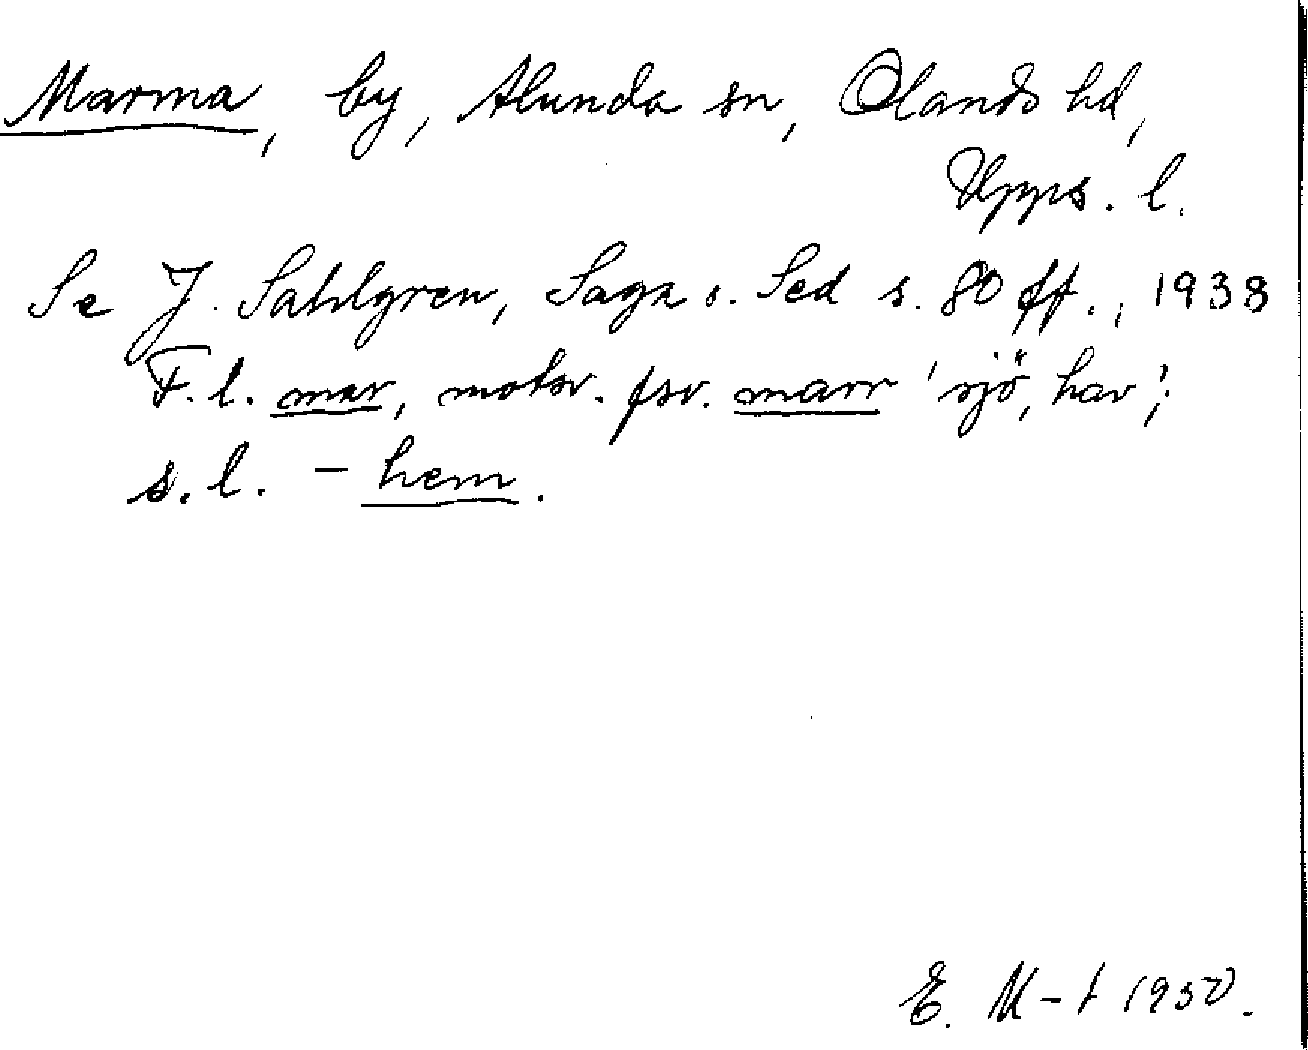 Marma, by, Alunda sn, Olands hd,
Upps. l.
Se J. Sahlgren, Saga o. Sed s. 80 ff., 1938
F.l. mar, motsv. fsv. marr 'sjö, hav';
s.l. - hem.
E. M-t 1950.